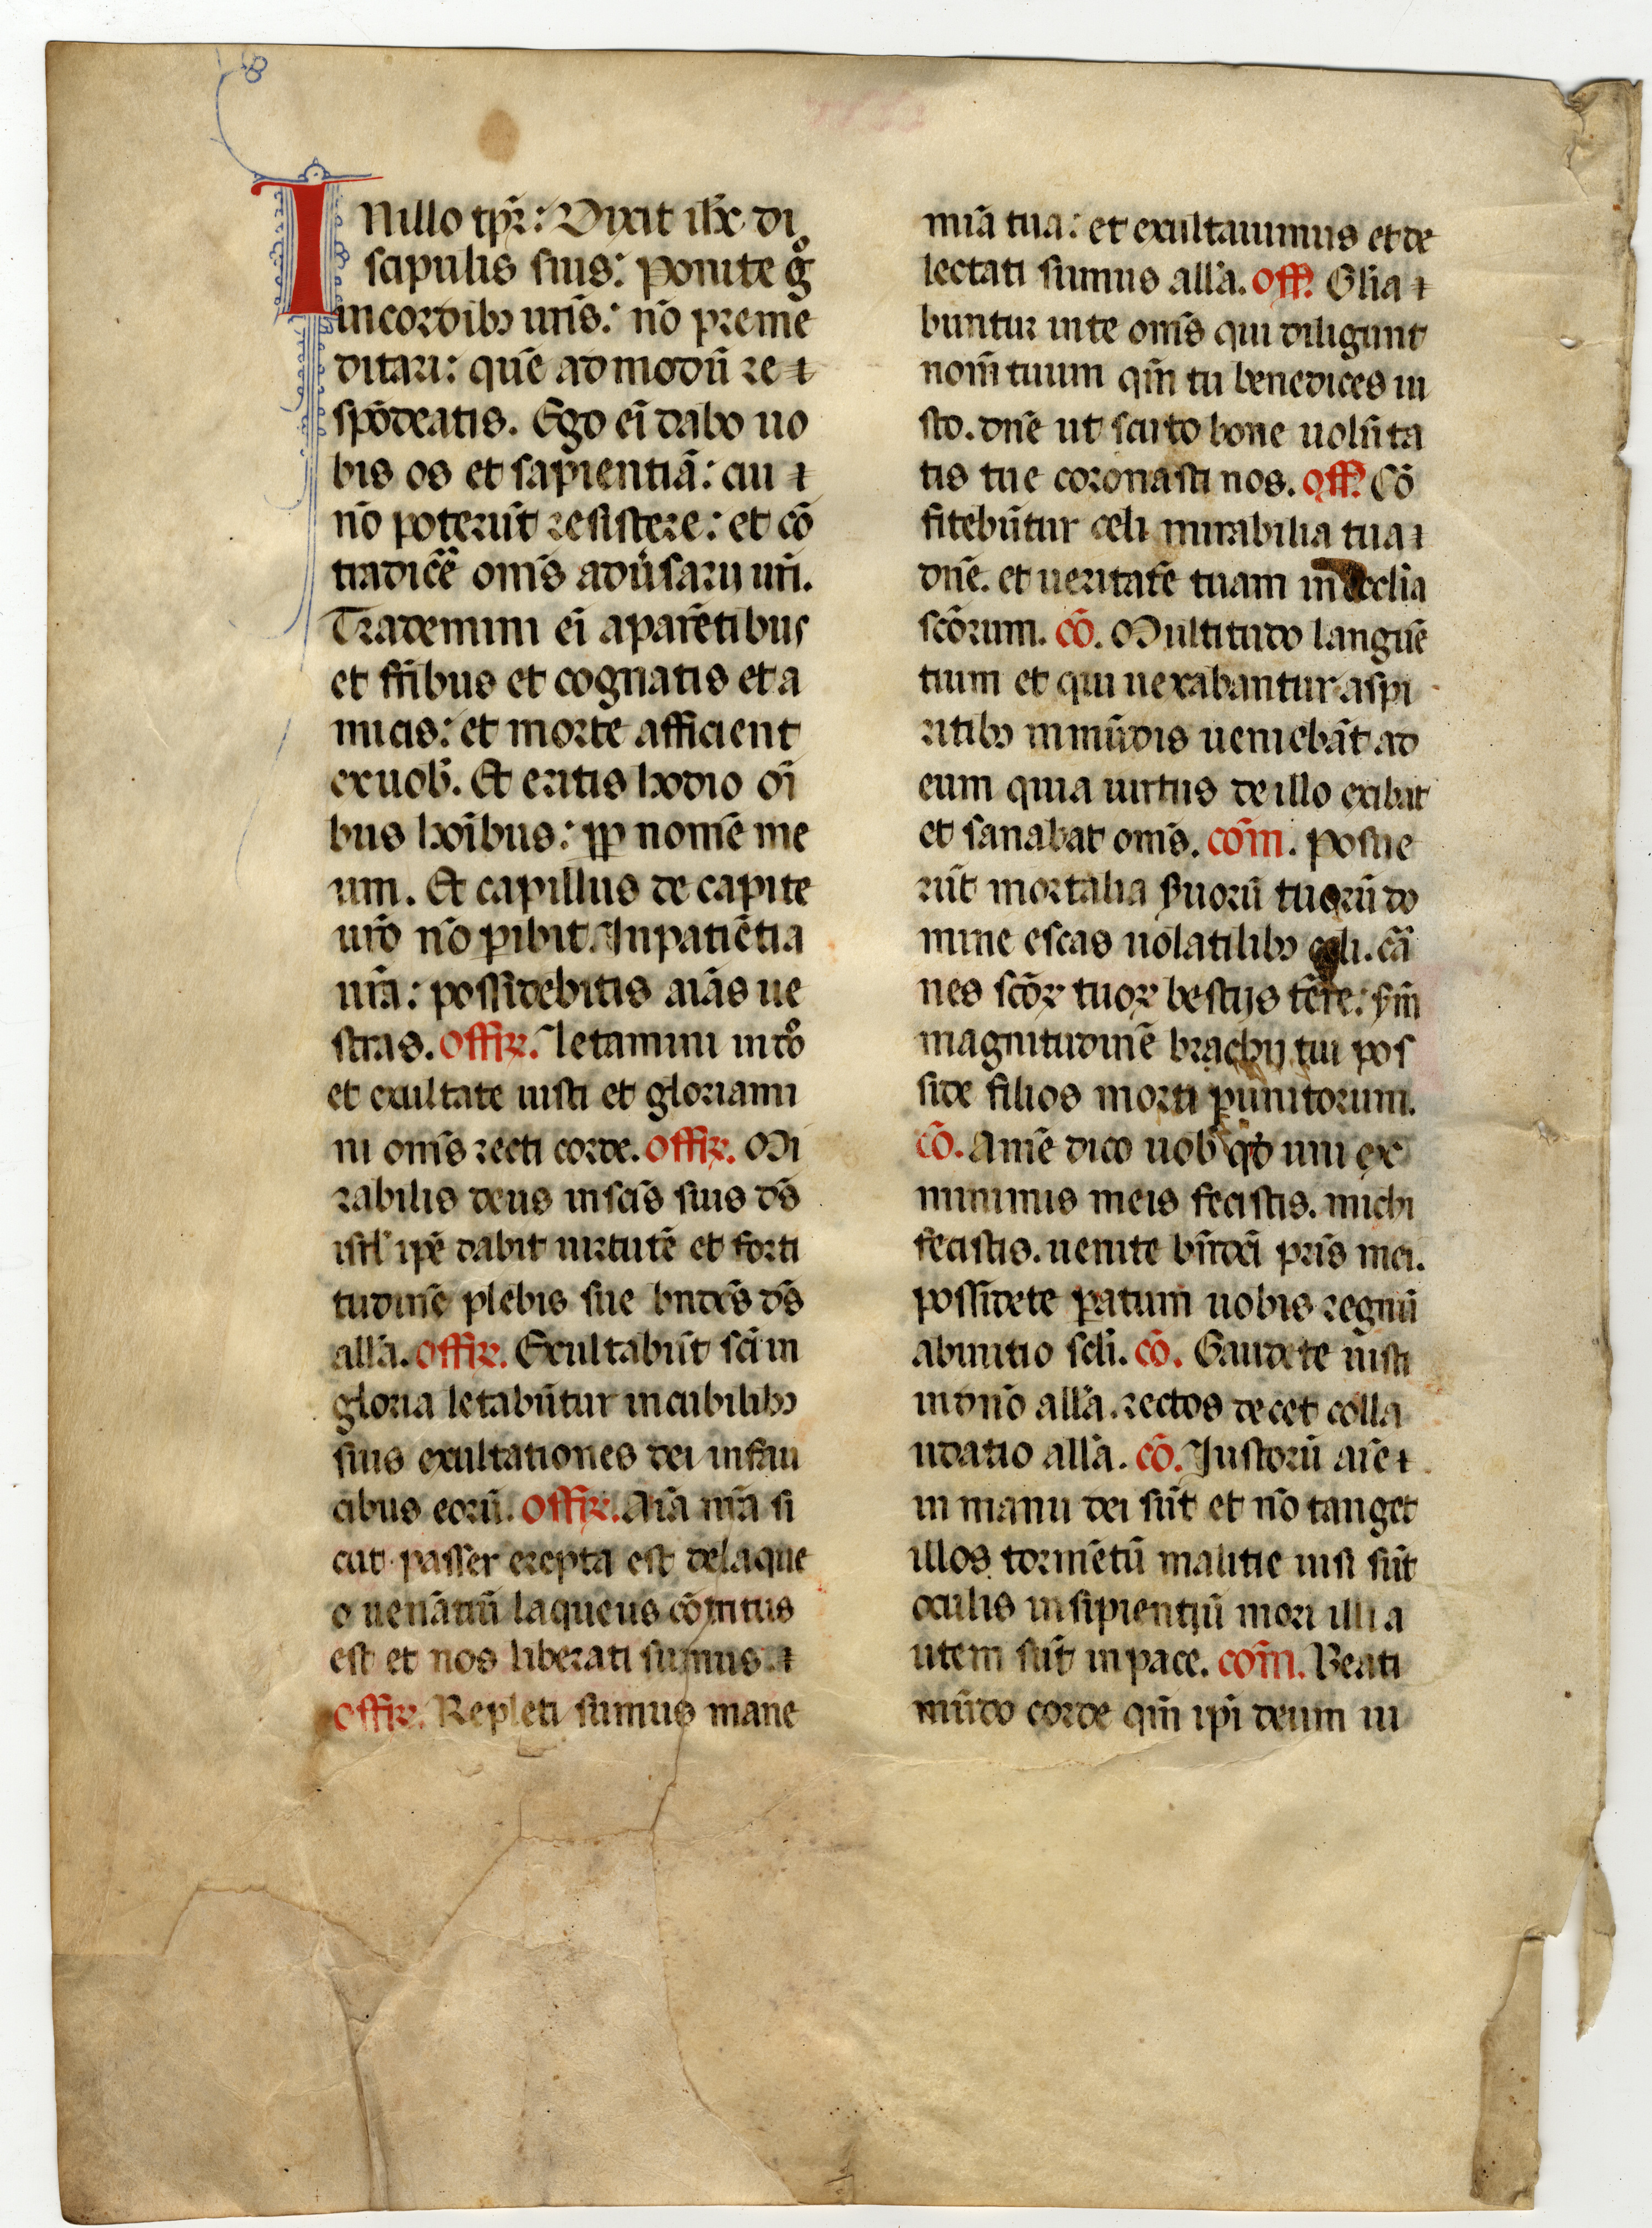 INillo tp̄r: Dixit ih̄c di
scipulis suis: Ponite gͦ
in cordibꝫ ur̄is: nō preme
ditari: quē ad modū re
spōdeatis. Ego ei᷑ dabo uo
bis os et sapientiā: cui
nō poterūt resistere: et cō
tradicē om̄s adūsarij ur̄i.
Trademini ei᷑ a parētibus
et fr̄ibus et cognatis et a
micis: et morte afficient
ex uob̄. Et eritis hodio oī
bus hoībus: ꝓp nomē me
um. Et capillus de capite
ur̄o nō ꝑibit. In patiētia
ur̄a: possidebitis aīas ue
stras. Offiꝝ. Letamini in dn̄o
et exultate iusti et gloriami
ni om̄s recti corde. Offiꝝ. Mi
rabilis deus in sc̄is suis ds̄
isrl̄ ip̄e dabit uirtutē et forti
tudinē plebis sue bn̄dc̄s ds̄
all̄a. Offiꝝ. Exultabūt sc̄i in
gloria letabūtur in cubilibꝫ
suis exultationes dei in fau
cibus eorū. Offiꝝ. Aīa nr̄a si
cut passer erepta est de laque
o uenātiū laqueus cōtritus
est et nos liberati sumus
Offiꝝ. Repleti sumus mane
mīa tua: et exultauimus et de
lectati sumus all̄a. Off̄. Gl̄ia
buntur in te om̄s qui diligunt
nom̄ tuum qm̄ tu benedices iu
sto. dn̄e ut scuto bone uolūta
tis tue coronasti nos. Off̄. Cō
fitebūtur celi mirabilia tua
dn̄e. et ueritatē tuam in ecclīa
sc̄orum. cō. Multitudo languē
tium et qui uexabantur a spi
ritibꝫ inmūdis ueniebāt ad
eum quia uirtus de illo exibat
et sanabat om̄s. com̄. Posue
rūt mortalia s̄uorū tuorū do
mine escas uolatilibꝫ celi. cā
nes sc̄oꝝ tuoꝝ bestijs tēre: s̄m
magnitudinē brachij tui pos
side filios morti punitorum.
cō. Amē dico uob̄ qd̄ uni ex
minimis meis fecistis. michi
fecistis. uenite bn̄dc̄i pr̄is mei.
possidete ꝑatum uobis regnū
ab initio scl̄i. cō. Gaudete iusti
in dn̄o all̄a. rectos decet colla
udatio all̄a. cō. Iustorū aīe
in manu dei sūt et nō tanget
illos tormētū malitie uisi sūt
oculis insipientiū mori illi a
utem sūt in pace. com̄. Beati
mūdo corde qm̄ ip̄i deum ui